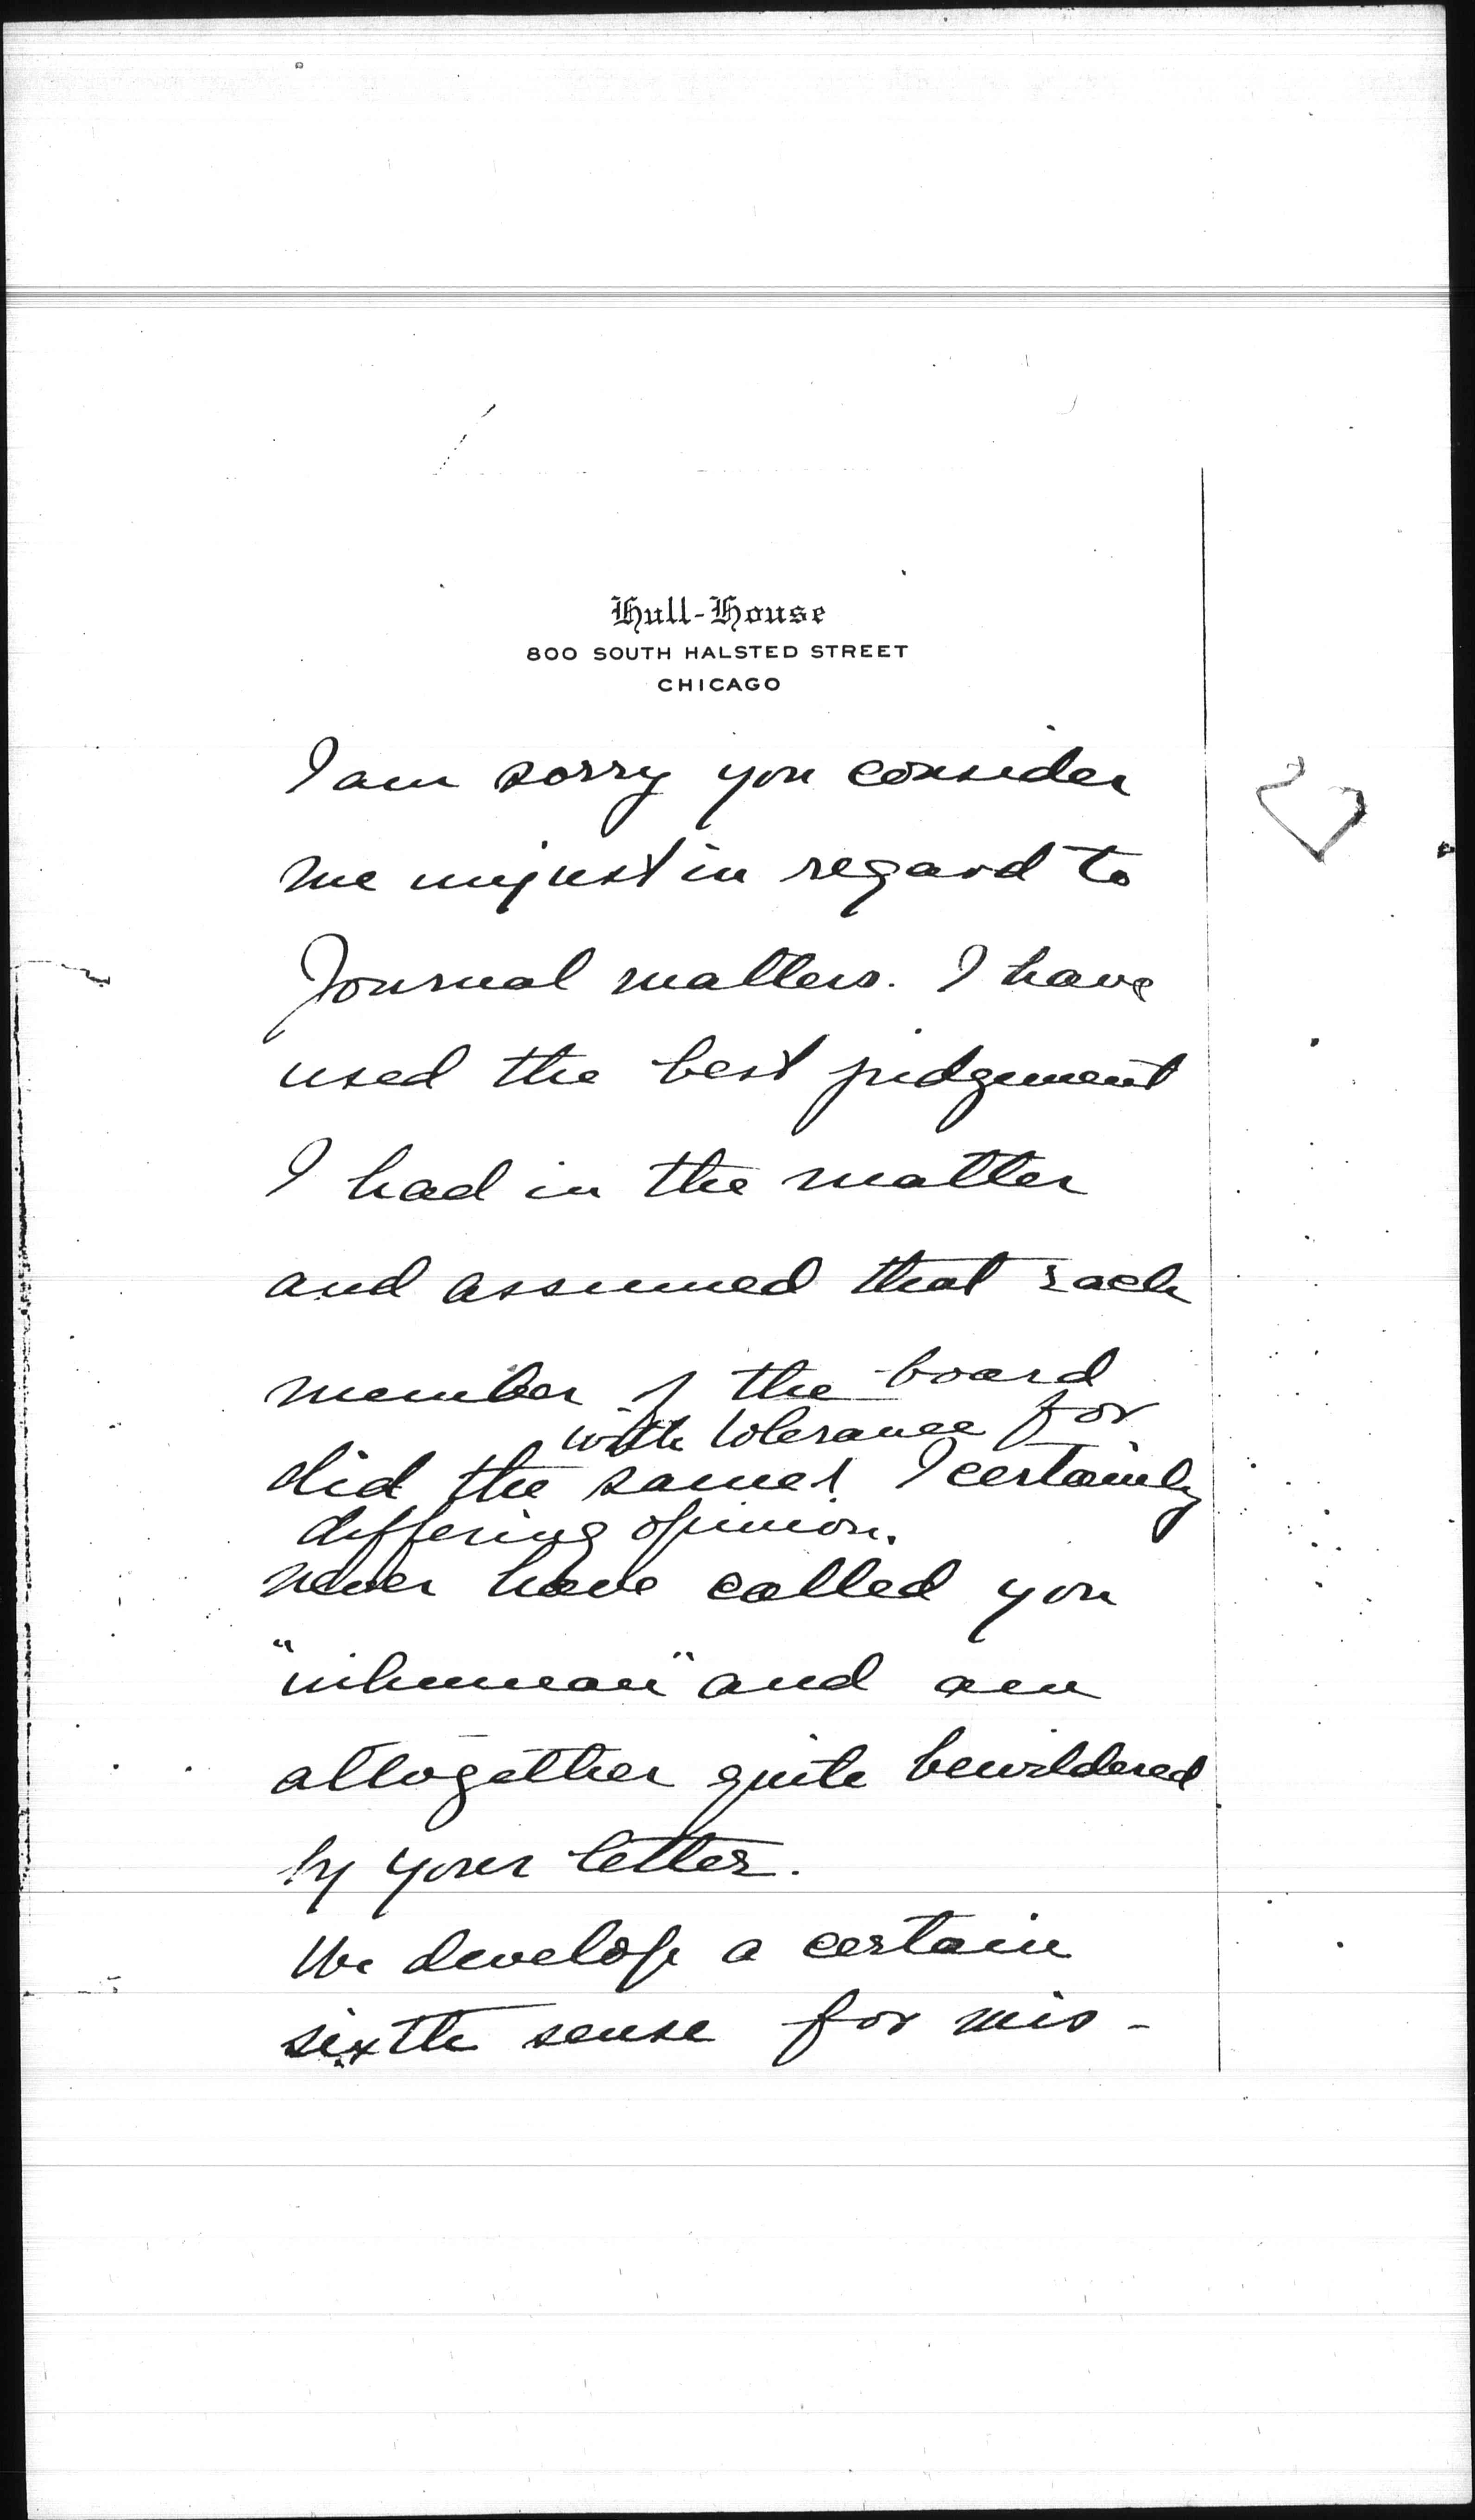 Hull-House
800 SOUTH HALSTED STREET
CHICAGO
I am sorry you consider
me unjust in regard to
Journal matters. I have
used the best judgement
I had in the matter
and assumed that each
member of the board
with tolerance for
did the same. I certainly
differing opinion.
never have called you
"inhuman" and am
altogether quite bewildered
by your letter.
We develop a certain
sixth sense for mis-